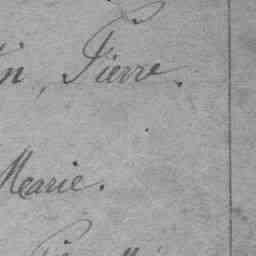 in, Pierre.
Marie.